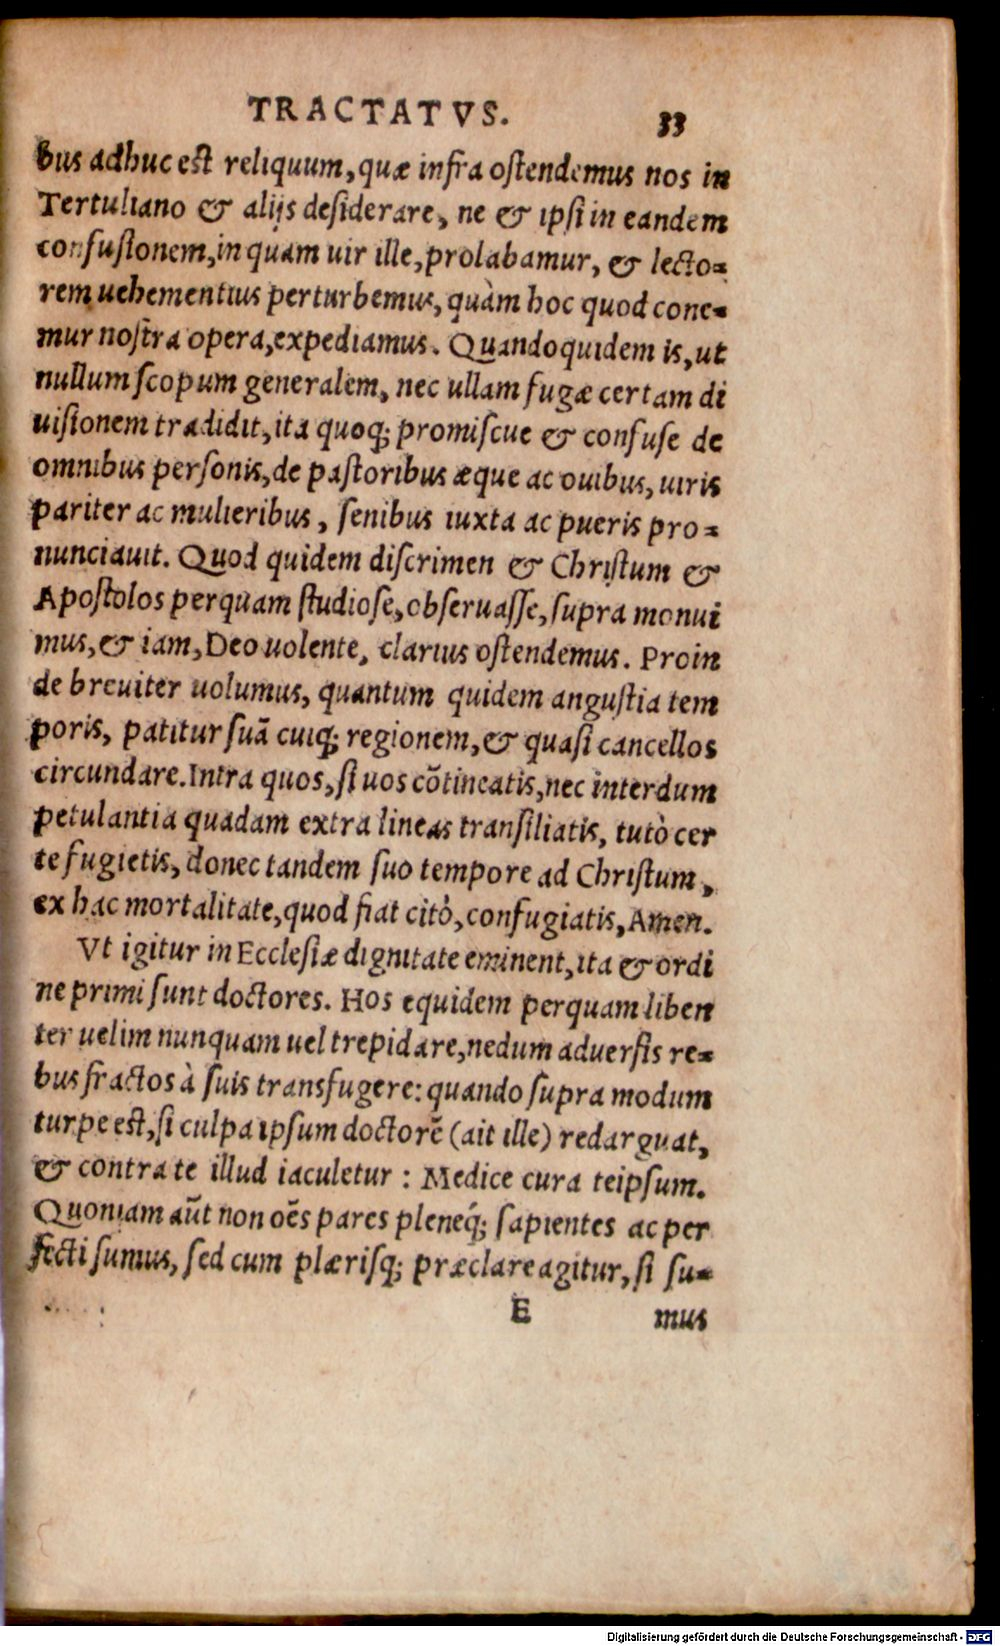 TRACTATVS. 33
bus adhuc est reliquum, quæ infra ostendemus nos in
Tertuliano & alijs desiderare, ne & ipsi in eandem
confusionem, in quam uir ille, prolabamur, & lecto=
rem uehementius perturbemus, quàm hoc quod cone=
mur nostra opera, expediamus. Quandoquidem is, ut
nullum scopum generalem, nec ullam fugæ certam di
uisionem tradidit, ita quoq; promiscue & confuse de
omnibus personis, de pastoribus æque ac ouibus, uiris
pariter ac mulieribus, senibus iuxta ac pueris pro=
nunciauit. Quod quidem discrimen & Christum &
Apostolos perquam studiose, obseruasse, supra monui
mus, & iam, Deo uolente, clarius ostendemus. Proin
de breuiter uolumus, quantum quidem angustia tem
poris, patitur suā cuiq; regionem, & quasi cancellos
circundare. Intra quos, si uos cōtineatis, nec interdum
petulantia quadam extra lineas transiliatis, tutò cer
te fugietis, donec tandem suo tempore ad Christum,
ex hac mortalitate, quod fiat citò, confugiatis, Amen.
Vt igitur in Ecclesiæ dignitate eminent, ita & ordi
ne primi sunt doctores. Hos equidem perquam liben
ter uelim nunquam uel trepidare, nedum aduersis re=
bus fractos à suis transfugere: quando supra modum
turpe est, si culpa ipsum doctorē (ait ille) redarguat,
& contra te illud iaculetur : Medice cura teipsum.
Quoniam aūt non oēs pares pleneq́; sapientes ac per
fecti sumus, sed cum plærisq; præclare agitur, si su=
E mus
Digitalisierung gefördert durch die Deutsche Forschungsgemeinschaft - DFG